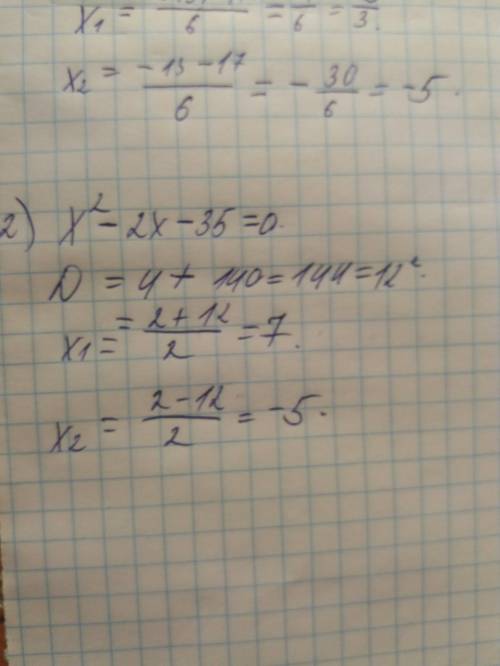 x1 = = 4/6 = 2/3.
x2 = (-13-17)/6 = -30/6 = -5.
2) x²-2x-35=0.
D = 4+140=144=12².
x1 = = (2+12)/2 = 7.
x2 = (2-12)/2 = -5.